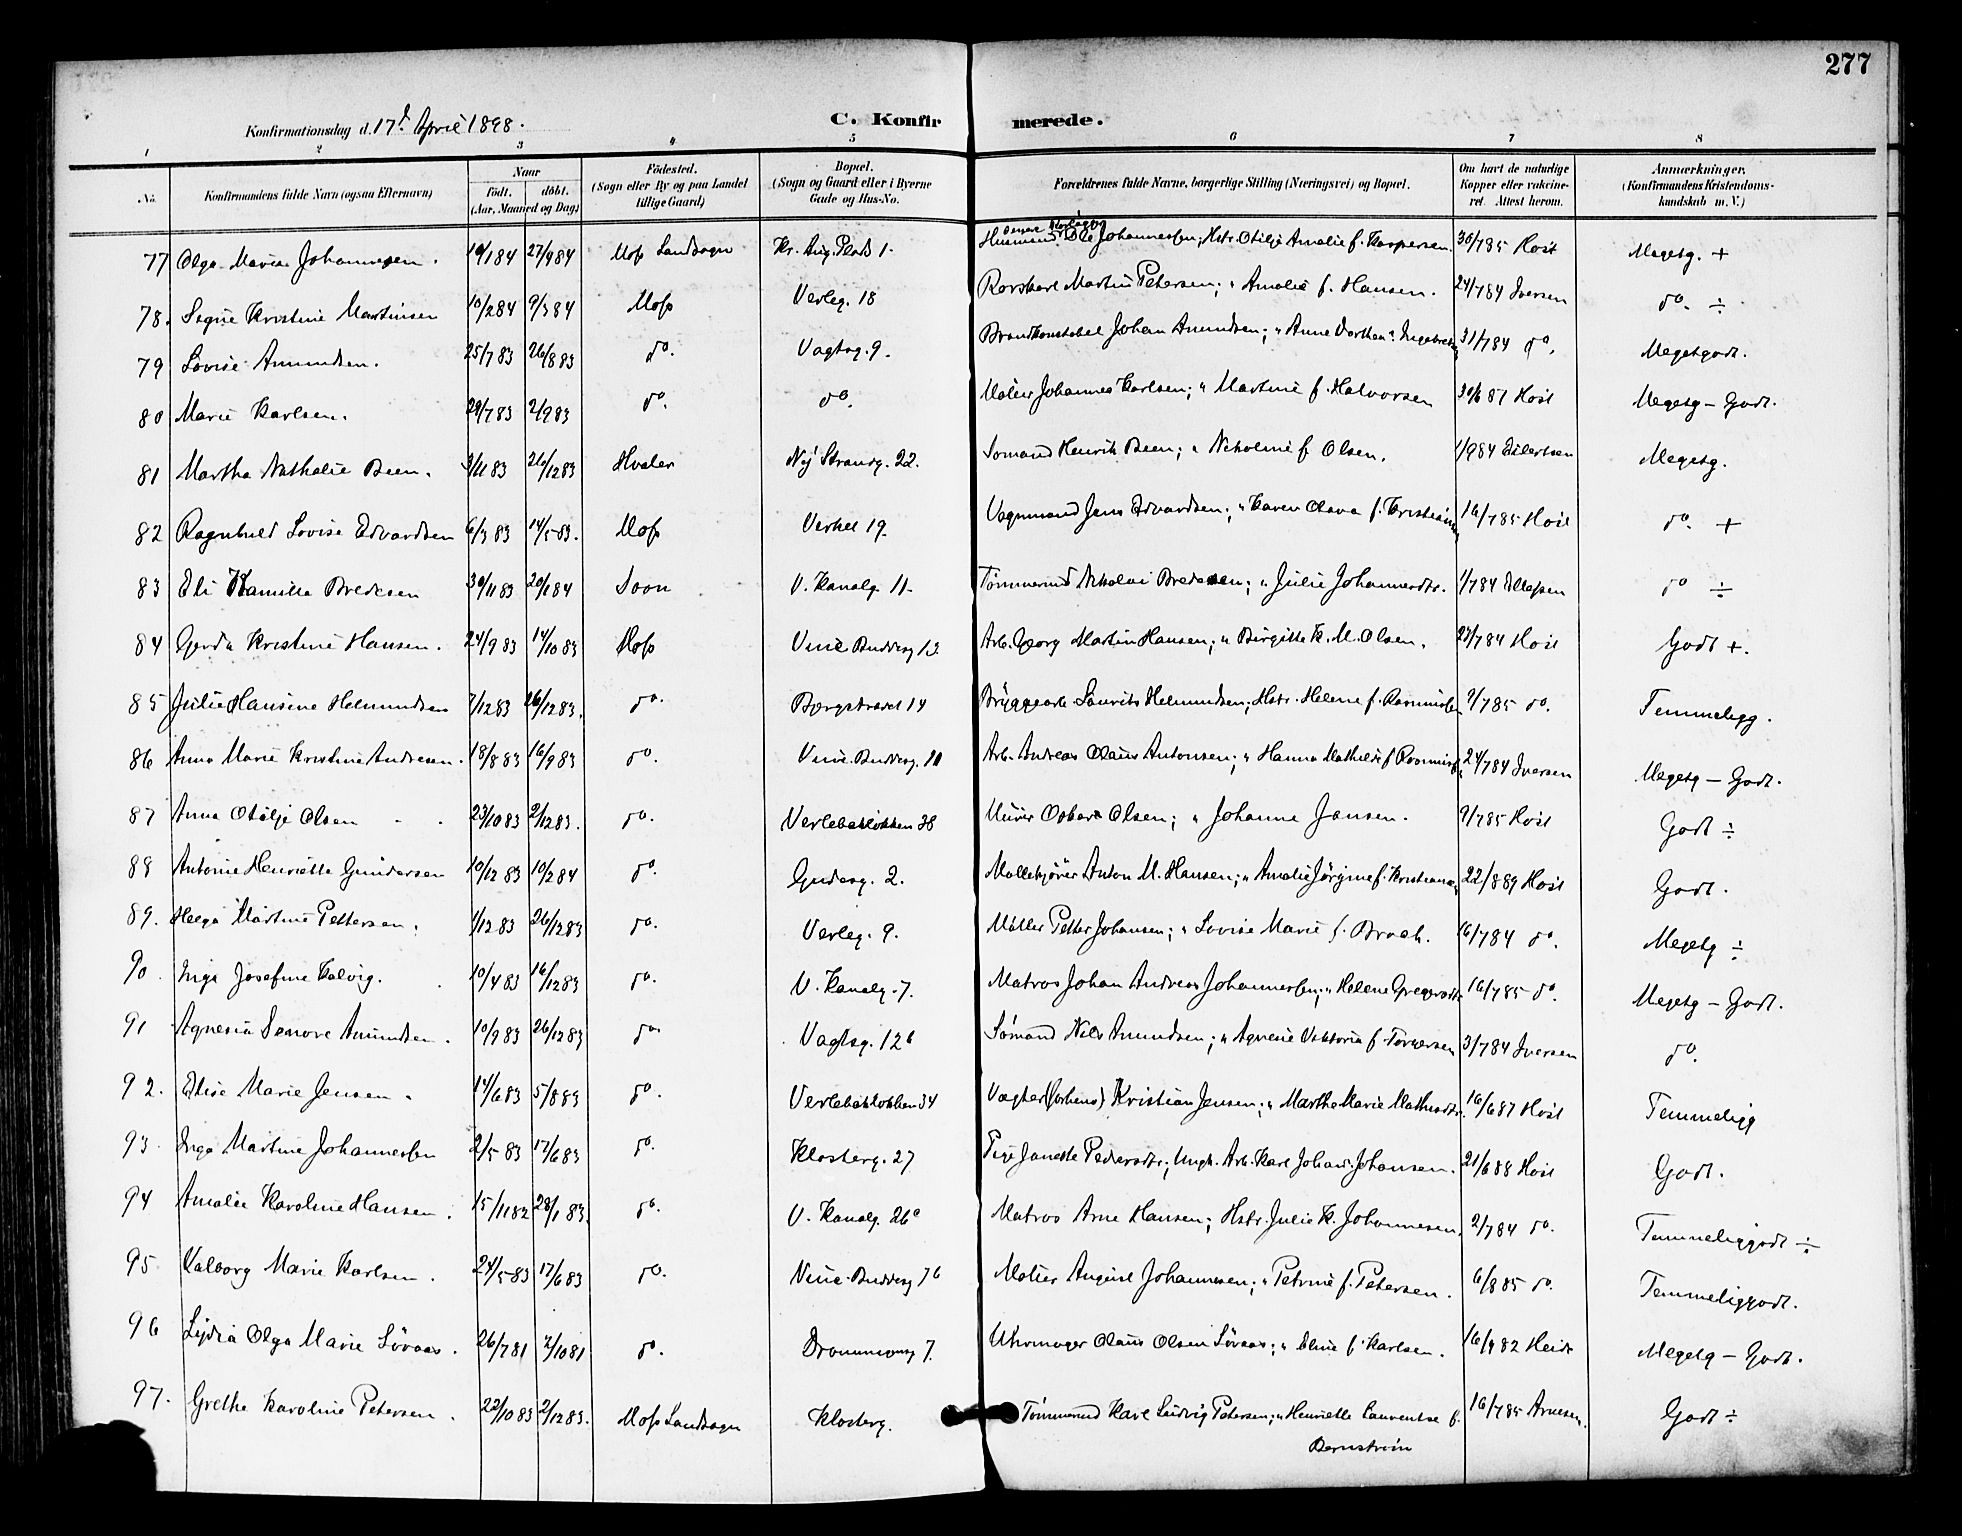 277
Konfirmationsdag d. 17d April 1898.
C. Konfirmerede.
1 2 3 4 5 6 7 8
No. Konfirmandens fulde Navn (ogsaa Efternavn) Naar födt. döbt. (Aar, Maaned og Dag) Födested. (Sogn eller By og paa Landet tillige Gaard) Bopæl. (Sogn og Gaard eller i Byerne Gade og Hus-No. Forældrenes fulde Navne, borgerlige Stilling (Næringsvei) og Bopæl. Om havt de naturlige Kopper eller vakcineret. Attest herom. Anmærkninger. (Konfirmandens Kristendomskundskab m. V.)
77 Olga Marie Johannesen. 10/1 84 27/9 84 Moss Landsogn Kr. Aug. Plads 1. Husmand Ole Johannessen; Hstr. Otilje Amalie f. Kaspersen. 30/7 85 Host Megetg. +
78. Signe Kristine Martinsen 10/2 84 9/3 84 Moss Verleg. 18 Rorskarl Martin Petersen; " Amalie f. Hansen. 24/7 84 Iversen do. ÷
79 Lovise Amundsen. 25/7 83 26/8 83 do. Vagtsg. 9. Brandkonstabel Johan Amundsen; " Anne Dorthea 31/7 84 do. Megetgodt.
80 Marie Karlsen. 29/7 83 2/9 83 do. do. Matier Johannes Karlsen; " Martine f. Halvorsen 30/6 87 Host Megetg - Godt.
81 Martha Nathalie Been. 3/11 83 26/12 83 Hvaler Ny Strandg. 22. Sömand Henrik Been; " Nikoline f. Olsen. 1/9 84 Eilertsen Megetg.
82 Ragnhild Lovise Edvardsen 6/3 83 14/5 83. Moss Verket 19. Vognmand Jens Edvardsen; " Karen Olava f. 16/7 85 Host do. +
83 Eli Kamilla Bredesen 30/11 83 20/1 84 Soon V. Kanalg. 11. Tömmermd Nikolai Bredesen; " Julie Johannesdtr. 1/7 84 Ellefsen do ÷
84 Gerda Kristine Hansen. 24/9 83 14/10 83 Moss Vinc. Buddesg 13. Arb. Georg Martin Hansen; " Birgitte K. M. Olsen. 27/7 84 Host Godt +.
85 Julie Hansine Helmundsen 7/12 83 26/12 83. do. Borgstrædet 14 Bryggearb. Laurits Helmundsen; Hstr. Helene f. 9/7 85 do. Temmeligg.
86 Anna Marie Kristine Andresen. 18/8 83 16/9 83 do. Vinc. Buddesg. 11 Arb. Andreas Olaus Antonsen; " Hanna Mathilde f. 24/7 84 Iversen Megetg - Godt.
87 Anna Otilje Olsen 23/10 83 2/12 83. do. Verlebakken 38 Murer Oskar Olsen; " Johanne Jansen. 9/7 85 Host Godt ÷
88 Antonie Henriette Gundersen 10/12 83 10/2 84 do. Gudesg. 2. Möllekjörer Anton M. Hansen; " Amalie Jörgine f. 22/8 89 Host Godt.
89. Helga Martine Pettersen. 1/12 83 26/12 83 do. Verleg. 9. Möller Petter Johansen; " Lovise Marie f. Brach. 16/7 84 do. Megetg ÷
90 Inga Josefine Kalvig. 10/4 83 16/12 83 do. V. Kanalg. 7. Matros Johan Andreas Johannessen; " Helene 16/7 85 do. Megetg - Godt.
91 Agnesia Senove Amundsen. 10/9 83 26/12 83 do. Vagtsg. 12b Sömand Nils Amundsen; " Agnesie Viktoria f. Torgersen 3/7 84 Iversen do.
92. Elise Marie Jensen. 14/6 83 5/8 83 do. Verlebakken 34 Vægter Kristian Jensen; " Marthe Marie 16/6 87 Host Temmeligg
93. Inga Martine Johannessen 2/5 83 17/6 83 do. Klosterg. 27 Pige Janette Pedersdtr., Ungk. Arb. Karl Johan Johansen. 21/6 88 Host Godt.
94 Amalie Karoline Hansen. 15/11 82 28/1 83. do. V. Kanalg. 26a Matros Arne Hansen; Hstr. Julie K. Johannesen. 2/7 84 do. Temmeliggodt ÷
95. Valborg Marie Karlsen. 24/5 83 17/6 83 do. Vinc. Buddesg 7b Matier August Johannesen; " Petrine f. Petersen. 6/8 85 do. Temmeliggodt.
96 Lydia Olga Marie Lövaas. 26/7 81 2/10 81 do. Dronningensg 7. Uhrmager Olaus Olsen Lövaas; " Eline f. Karlsen. 16/9 82 Heide Megetg - Godt.
97. Grethe Karoline Petersen. 22/10 83 2/12 83. Moss Landsogn Klosterg. Tömmermd Karl Ludvig Petersen; " Henriette Laurentse f. Bernström 16/7 85 Arnesen. Godt ÷